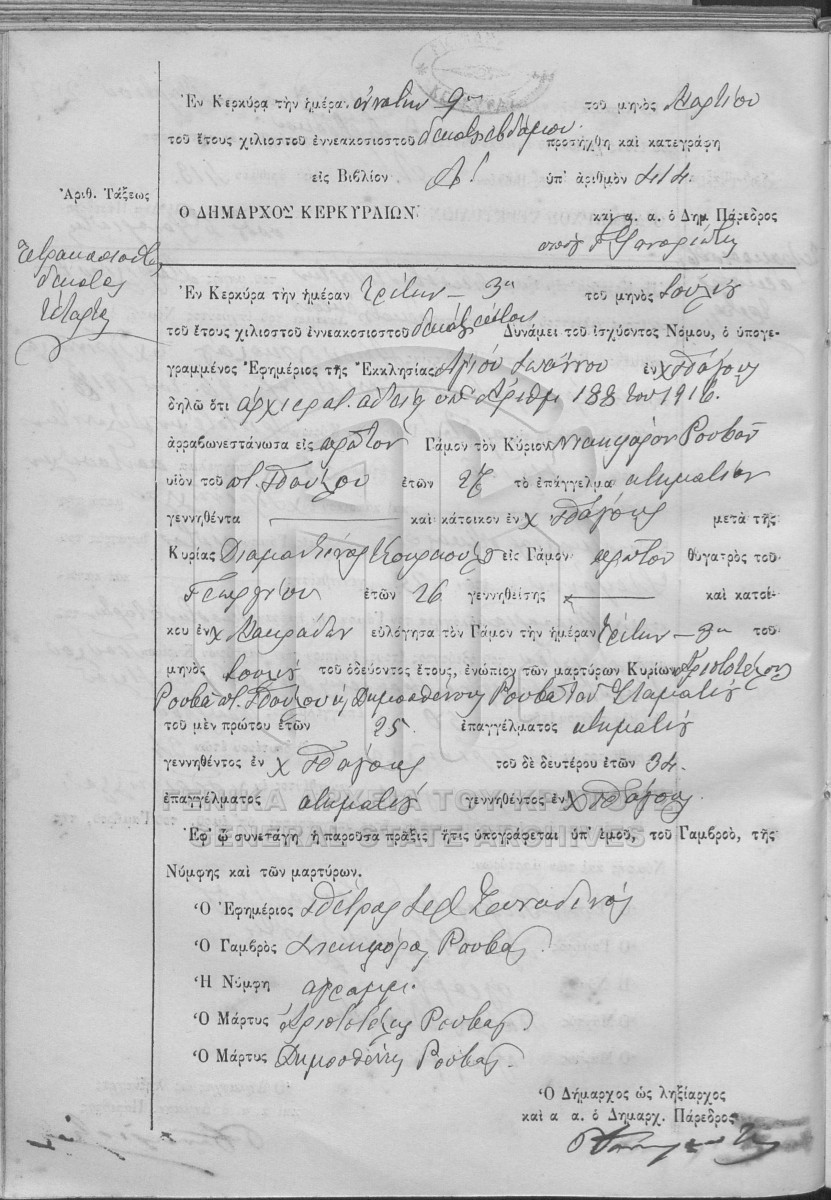 Ἐν Κερκύρᾳ τὴν ἡμέραν ἐννάτην 9ην τοῦ μηνὸς Μαρτίου
τοῦ ἔτους χιλιοστοῦ ἐννεακοσιοστοῦ δεκάτου ἑβδόμου προσήχθη καὶ κατεγράφη
εἰς Βιβλίον Α! ὑπ' ἀριθμὸν 414.
Ἀριθ. Τάξεως
Ο ΔΗΜΑΡΧΟΣ ΚΕΡΚΥΡΑΙΩΝ καὶ α. α. ὁ Δημ Πάρεδρος
Τετρακοσιοστὸς
δέκατος
τέταρτος
Ἐν Κερκύρᾳ τὴν ἡμέραν τρίτην - 3ην τοῦ μηνὸς Ἰουλίου
τοῦ ἔτους χιλιοστοῦ ἐννεακοσιοστοῦ δεκάτου ἕκτου Δυνάμει τοῦ ἰσχύοντος Νόμου, ὁ ὑπογε-
γραμμένος Ἐφημέριος τῆς Ἐκκλησίας Ἁγίου Ἰωάννου ἐν χ Πάγους
δηλῶ ὅτι ἀρχιερατ. ἀδείᾳ ὑπ' ἀριθμ 188 του 1916.
ἀρραβωνεστάνωσα εἰς πρῶτον Γάμον τὸν Κύριον Νικηφόρον Ρουβᾶν
υἱὸν τοῦ ποτ. Παύλου ἐτῶν 27 τὸ ἐπάγγελμα κτηματίαν
γεννηθέντα — καὶ κάτοικον ἐν χ Πάγους μετὰ τῆς
Κυρίας Διαμαντίνας εἰς Γάμον πρῶτον θυγατρὸς τοῦ
Γεωργίου ἐτῶν 26 γεννηθείσης — καὶ κατοί-
κου ἐν χ Μακράδων εὐλόγησα τὸν Γάμον τὴν ἡμέραν τρίτην - 3ην τοῦ
μηνὸς Ἰουλίου τοῦ ὁδεύοντος ἔτους, ἐνώπιον τῶν μαρτύρων Κυρίων Ἀριστοτέλους
Ρουβᾶ ποτ. Παύλου κ Δημοσθένους Ρουβᾶ του Σταματίου
τοῦ μὲν πρώτου ἐτῶν 25 ἐπαγγέλματος κτηματίου
γεννηθέντος ἐν χ Πάγους τοῦ δὲ δευτέρου ἐτῶν 34
ἐπαγγέλματος κτηματίου γεννηθέντος ἐν χ Πάγους.
ΓΕΝΙΚΑ ΑΡΧΕΙΑ ΤΟΥ ΚΡΑΤΟΥΣ
GENERAL STATE ARCHIVES
Ἐφ' ᾧ συνετάγη ἡ παροῦσα πρᾶξις ἥτις ὑπογράφεται ὑπ' ἐμοῦ, τοῦ Γαμβροῦ, τῆς
Νύμφης καὶ τῶν μαρτύρων.
Ὁ Ἐφημέριος Πέτρος Ἱερ
Ὁ Γαμβρὸς Νικηφόρος Ρουβᾶς.
Ἡ Νύμφη ἀγράμμ.
Ὁ Μάρτυς Ἀριστοτέλης Ρουβᾶς.
Ὁ Μάρτυς Δημοσθένης Ρουβᾶς.
Ὁ Δήμαρχος ὡς ληξίαρχος
καὶ α α. ὁ Δημαρχ. Πάρεδρος